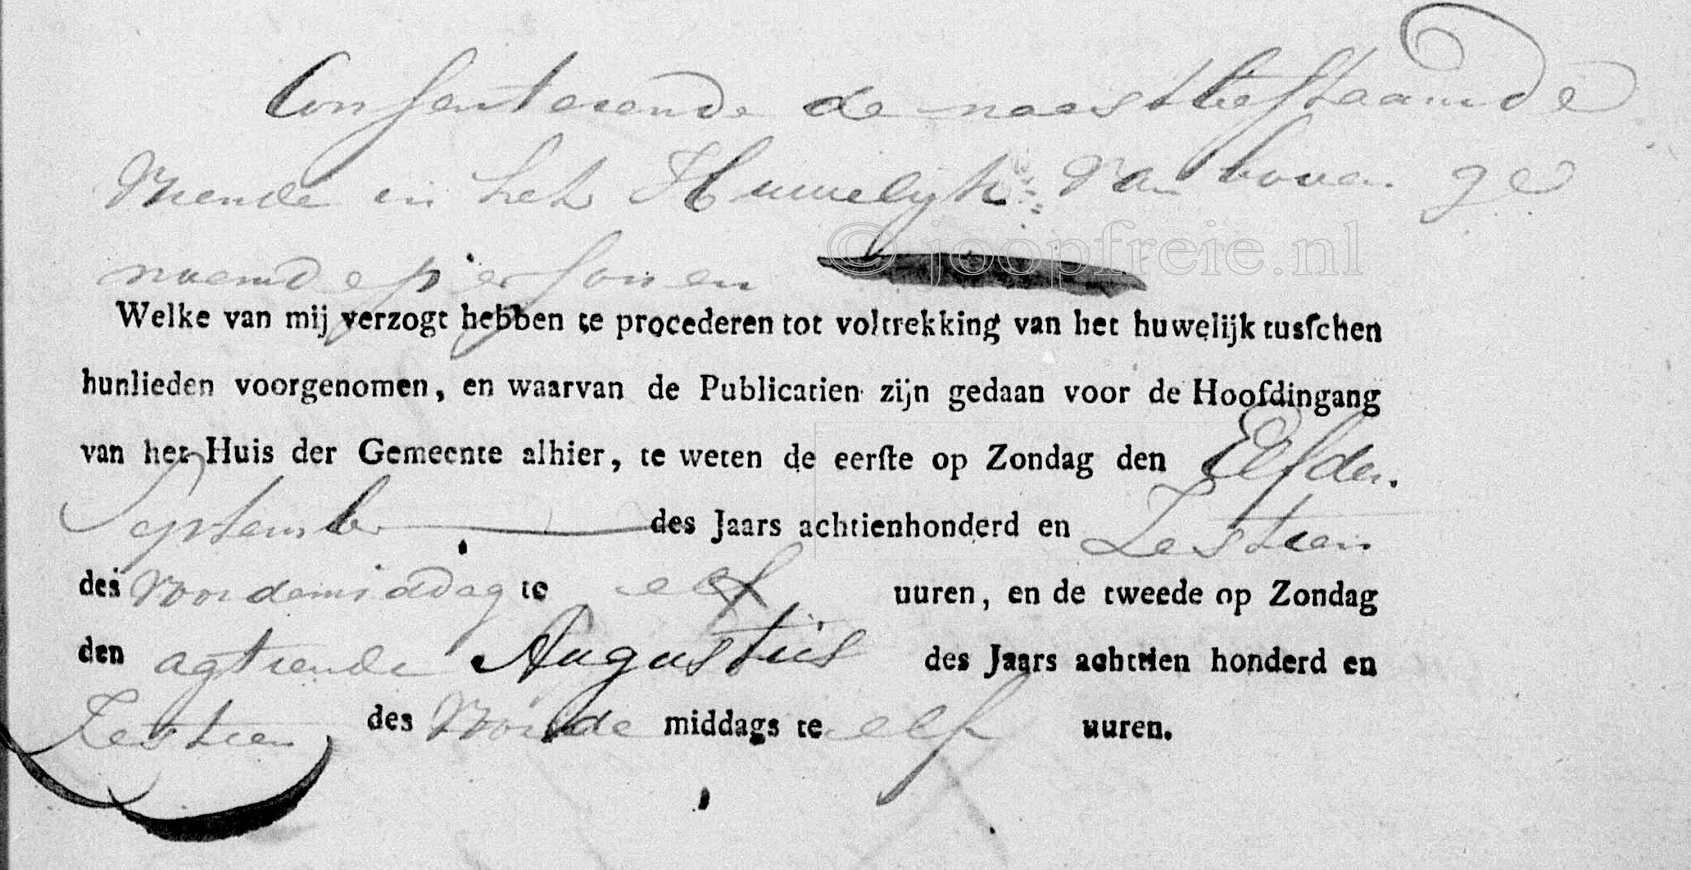 Consenterende de naastbestaande
Vriende in het Huwelijk van boven ge
noemde persoonen
© joopfreie.nl
Welke van mij verzogt hebben te procederen tot voltrekking van het huwelijk tusschen
hunlieden voorgenomen, en waarvan de Publicatien zijn gedaan voor de Hoofdingang
van het Huis der Gemeente alhier, te weten de eerste op Zondag den Elfden.
September des Jaars achtienhonderd en Zestien
des Voordemiddag te elf uuren, en de tweede op Zondag
den agtiende Augustus des Jaars achttien honderd en
Zestien des Voorde middags te elf uuren.